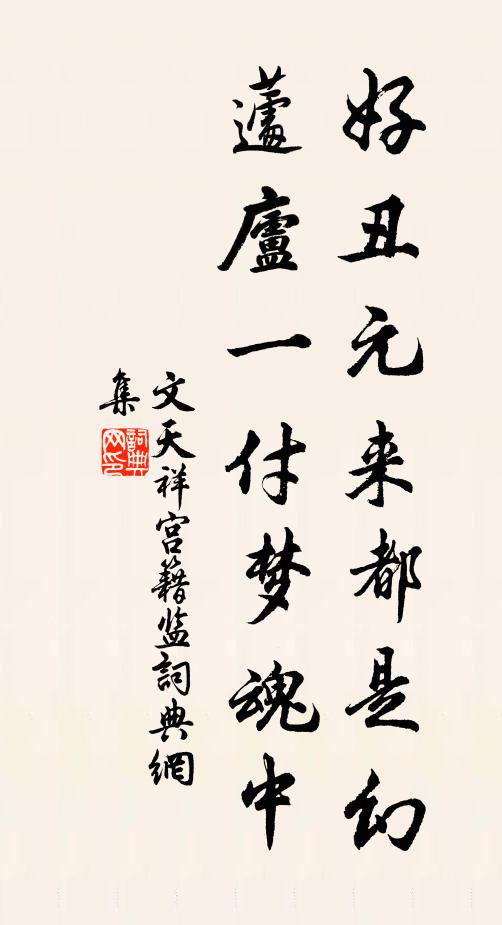 好丑元来都是幻
蘧廬一付梦魂中
文天祥宫籍监詞典網
集
詞典网印